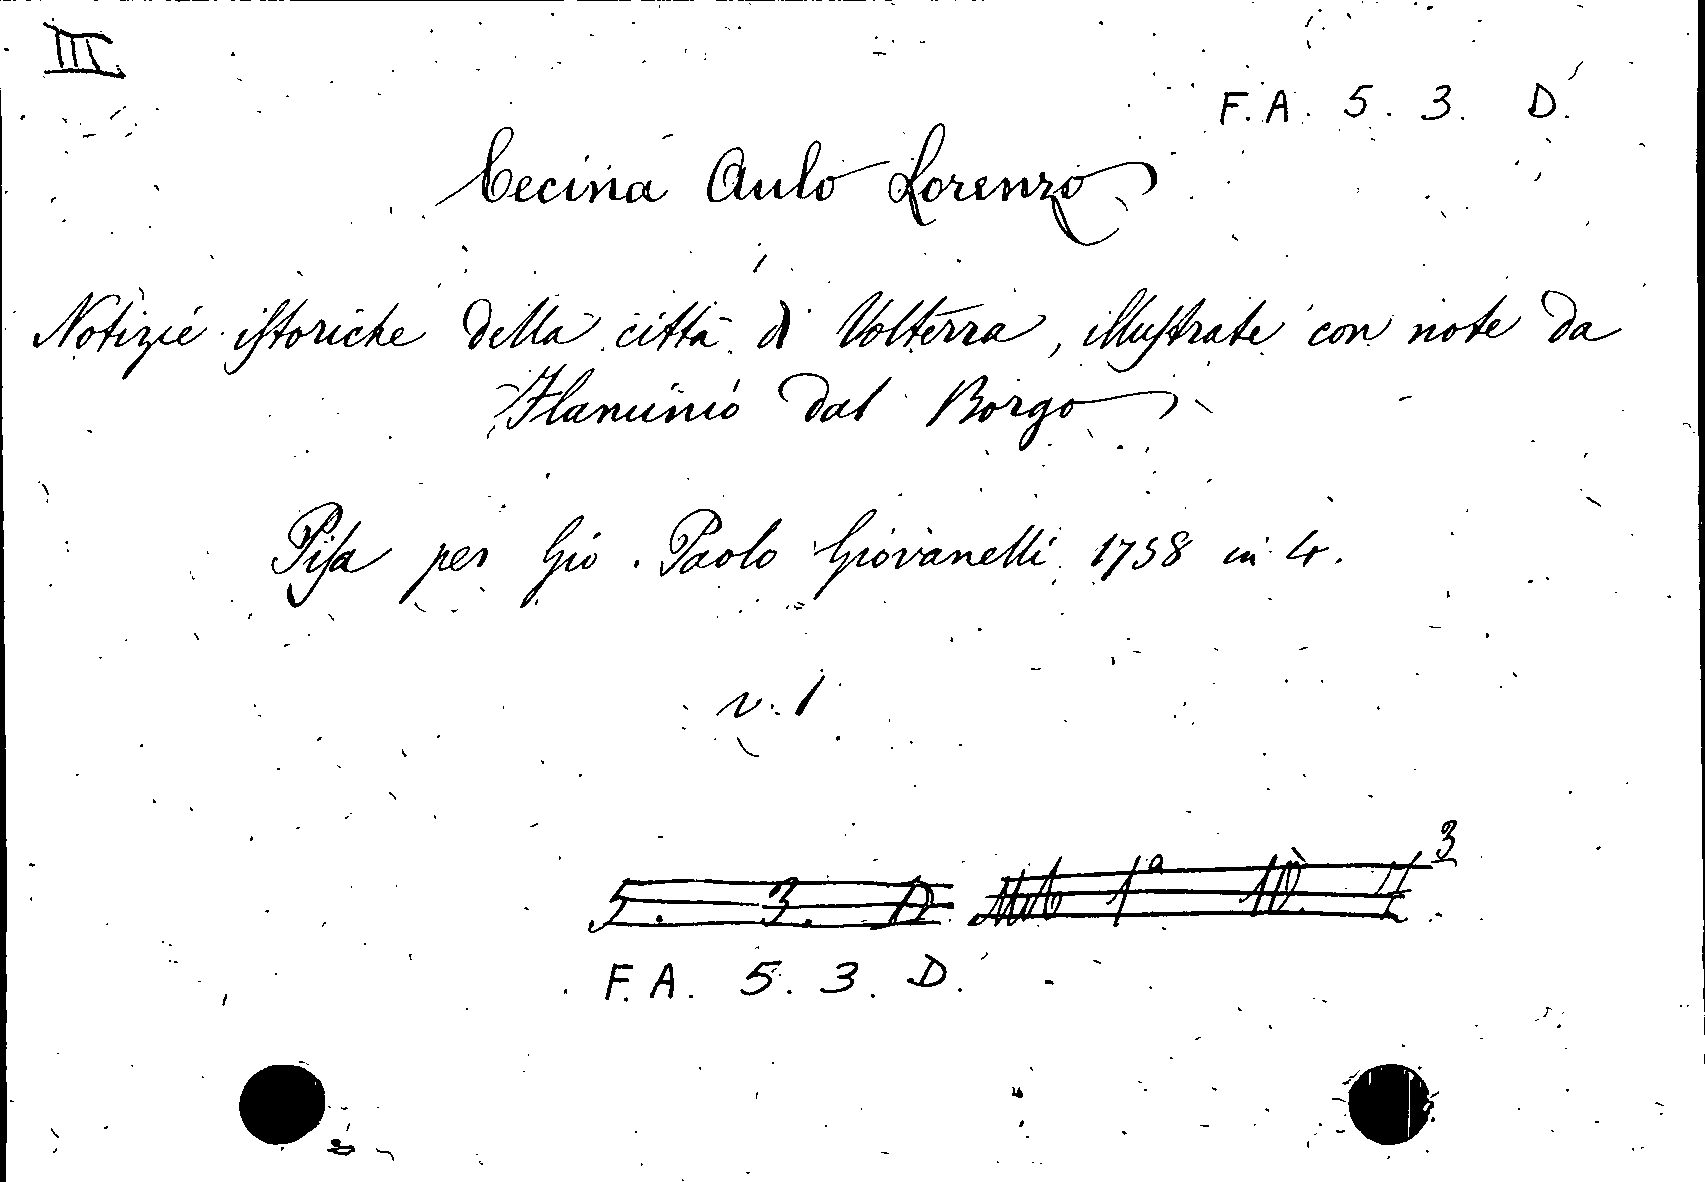 III
F. A. 5. 3. D.
Cecina Aulo Lorenzo
Notizie istoriche della città di Volterra, illustrate con note da
Flaminio dal Borgo
Pisa per Gio. Paolo Giovanelli 1758 in 4.
v. 1
5. 3. D 1ª 10. 4 3
F. A. 5. 3. D.